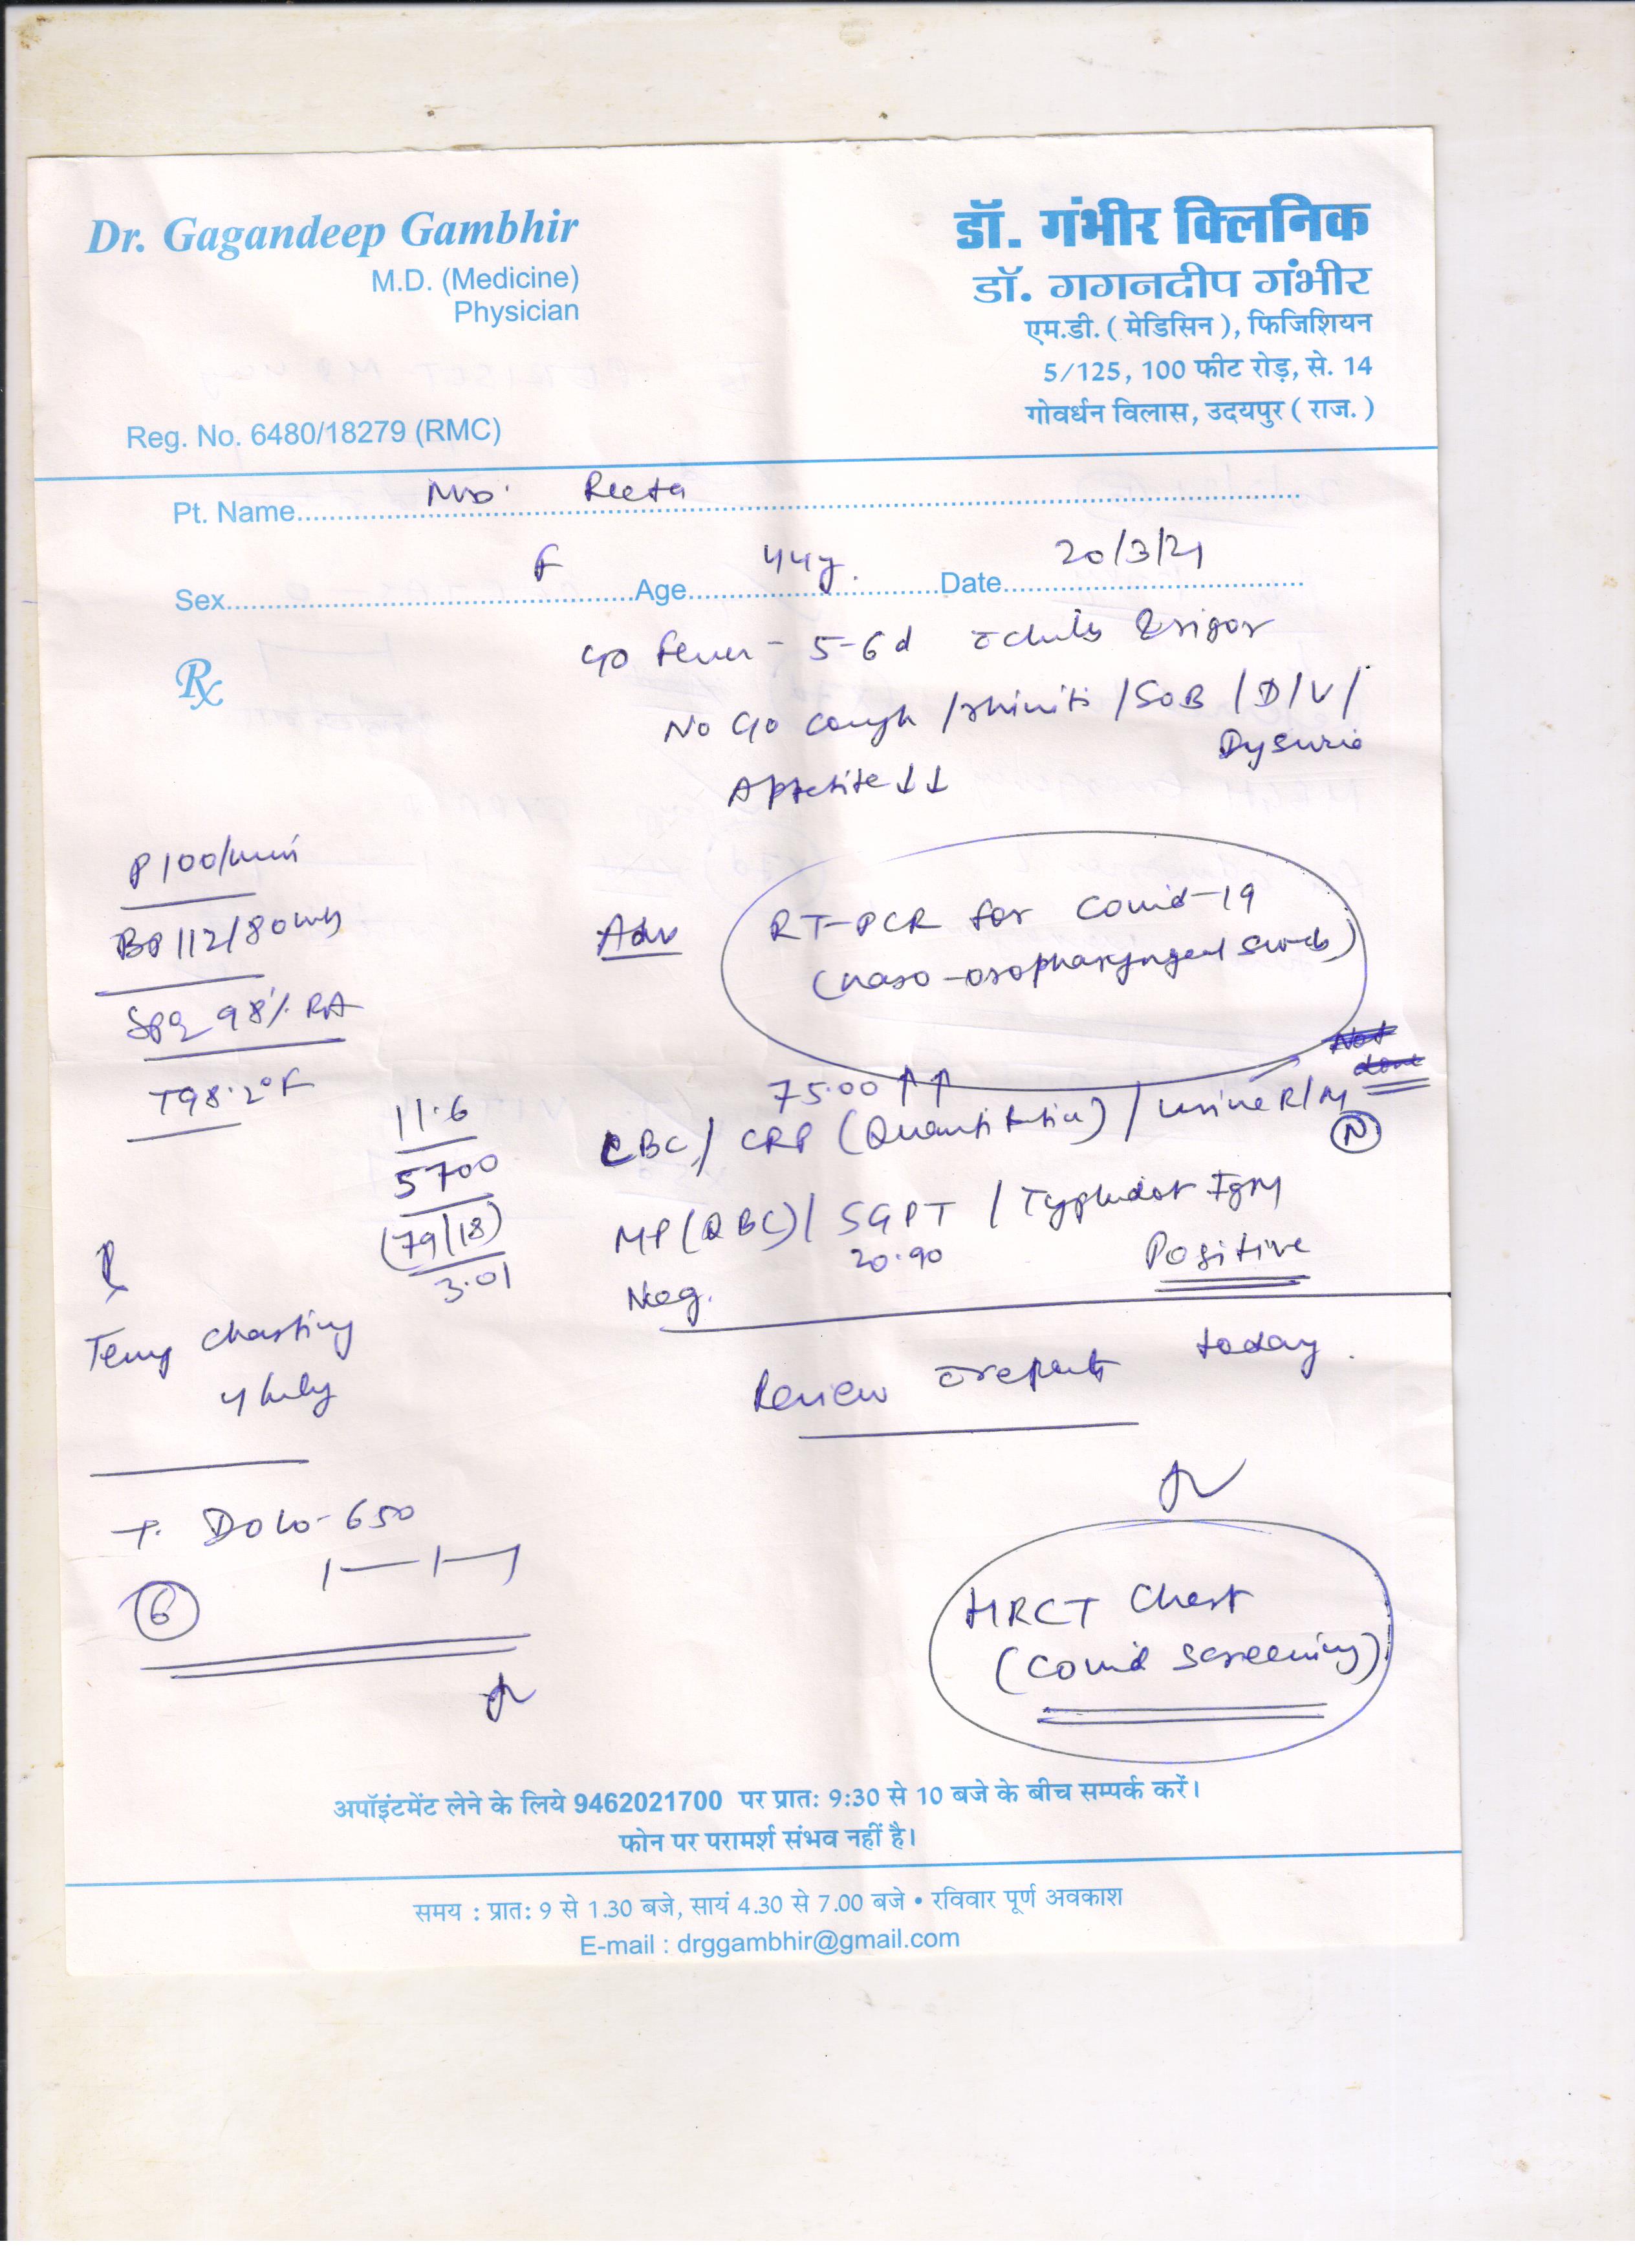 Dr. Gagandeep Gambhir
M.D. (Medicine)
Physician
Reg. No. 6480/18279 (RMC)
डॉ. गंभीर क्लिनिक
डॉ. गगनदीप गंभीर
एम.डी. ( मेडिसिन ), फिजिशियन
5/125, 100 फीट रोड़, से. 14
गोवर्धन विलास, उदयपुर ( राज. )
Pt. Name Mrs. Reeta
Sex F Age 44y. Date 20/3/21
Rx
c/o fever - 5-6d c̄ chills & rigor
No c/o cough / rhinitis / SOB / D / V /
Dysuria
Appetite ↓↓
P 100/min
BP 112/80
SpO2 98% RA
T 98.2°F
Adv RT-PCR for Covid-19
(naso-oropharyngeal swab)
Not done
75.00 ↑↑
CBC / CRP (Quantitative) / urine R/M
N
11.6
5700
(79/18)
3.01
MP (QBC) / SGPT / Typhidot IgM
Neg. 20.90 Positive
Review c̄ reports today.
Rx
Temp charting
4 hrly
T. Dolo-650
1—1—1
6
HRCT Chest
(Covid screening)
अपॉइंटमेंट लेने के लिये 9462021700 पर प्रातः 9:30 से 10 बजे के बीच सम्पर्क करें।
फोन पर परामर्श संभव नहीं है।
समय : प्रातः 9 से 1.30 बजे, सायं 4.30 से 7.00 बजे • रविवार पूर्ण अवकाश
E-mail : drggambhir@gmail.com